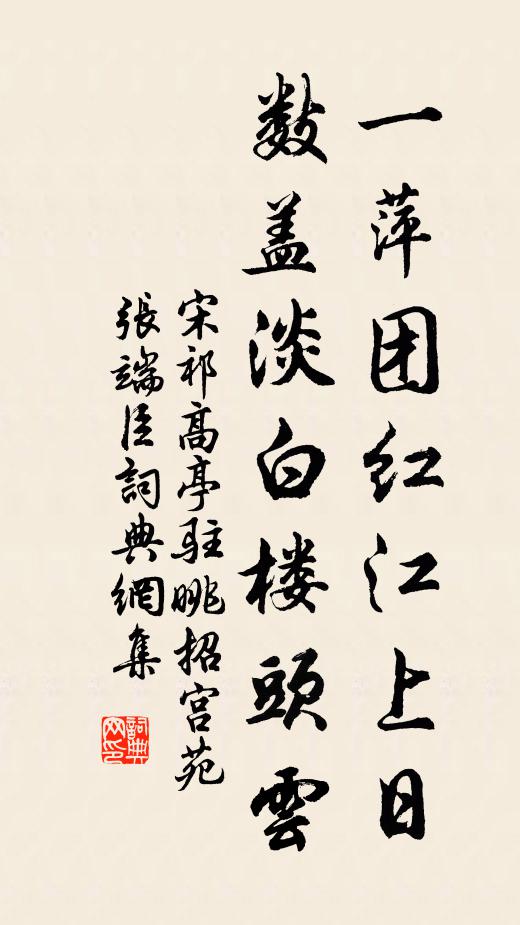 一萍团红江上日
数盖淡白楼頭雲
宋祁高亭駐眺招宫苑
張端臣詞典網集
詞典网印